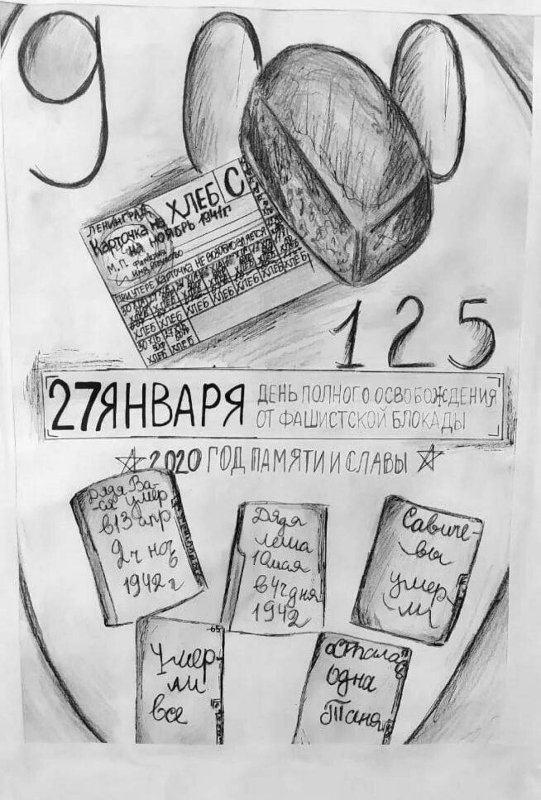 900
ЛЕНИНГРАД
Карточка на ХЛЕБ С
на НОЯБРЬ 1941г
М.П.
ПРИ УТЕРЕ КАРТОЧКА НЕ
ХЛЕБ ХЛЕБ ХЛЕБ ХЛЕБ ХЛЕБ
ХЛЕБ ХЛЕБ
ХЛЕБ ХЛЕБ
125
27 ЯНВАРЯ
ДЕНЬ ПОЛНОГО ОСВОБОЖДЕНИЯ
ОТ ФАШИСТСКОЙ БЛОКАДЫ
2020 ГОД ПАМЯТИ И СЛАВЫ
Дядя Ва-
ся умер
в 13 апр
2 ч ноч
1942 г
Дядя
Леша
10 мая
в 4 ч дня
1942
Савиче-
вы
умер-
ли
Умер-
ли
все
Осталась
одна
Таня